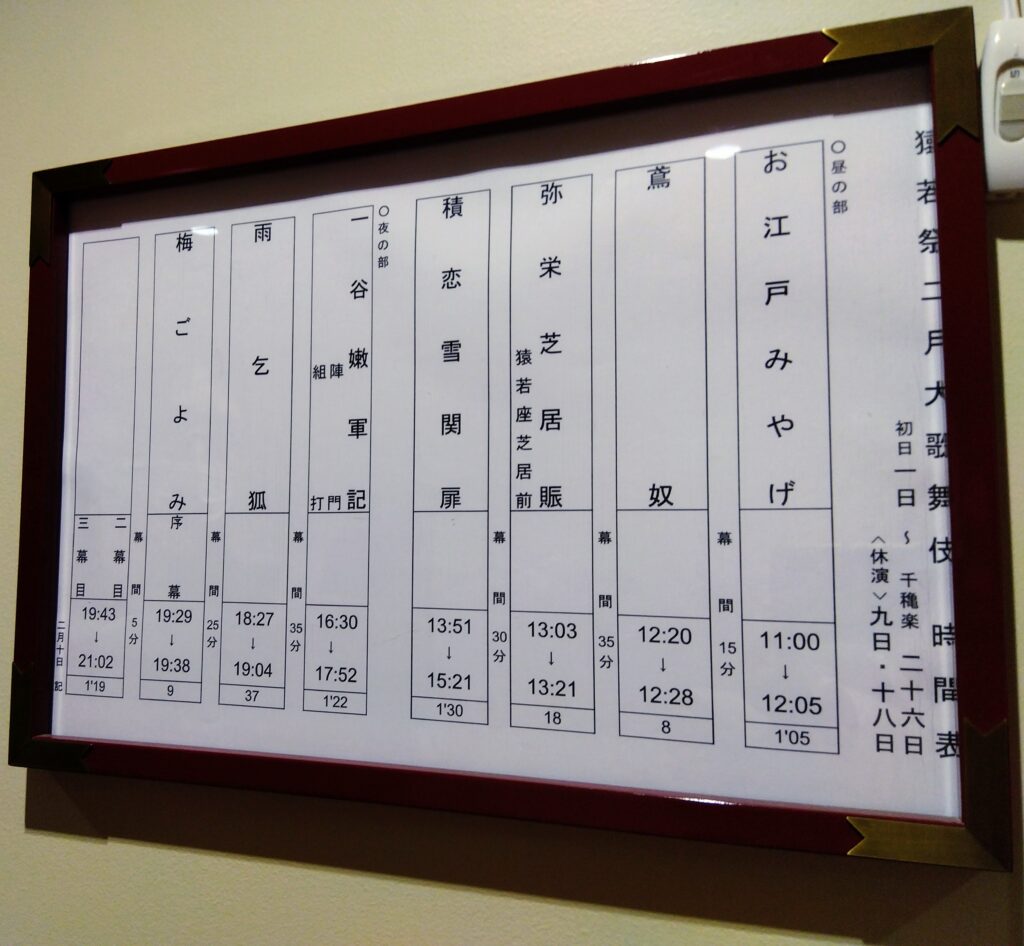 猿若祭二月大歌舞伎 時間表
初日一日 ~ 千穐楽 二十六日
<休演>九日・十八日
○昼の部
お江戸みやげ
11:00
↓
12:05
1'05
幕間 15分
鳶奴
12:20
↓
12:28
8
幕間 35分
弥栄芝居賑
猿若座芝居前
13:03
↓
13:21
18
幕間 30分
積恋雪関扉
13:51
↓
15:21
1'30
○夜の部
一谷嫩軍記
陣門
組打
16:30
↓
17:52
1'22
幕間 35分
雨乞狐
18:27
↓
19:04
37
幕間 25分
梅ごよみ
序幕
19:29
↓
19:38
9
幕間 5分
二幕目
三幕目
19:43
↓
21:02
1'19
二月十日 記